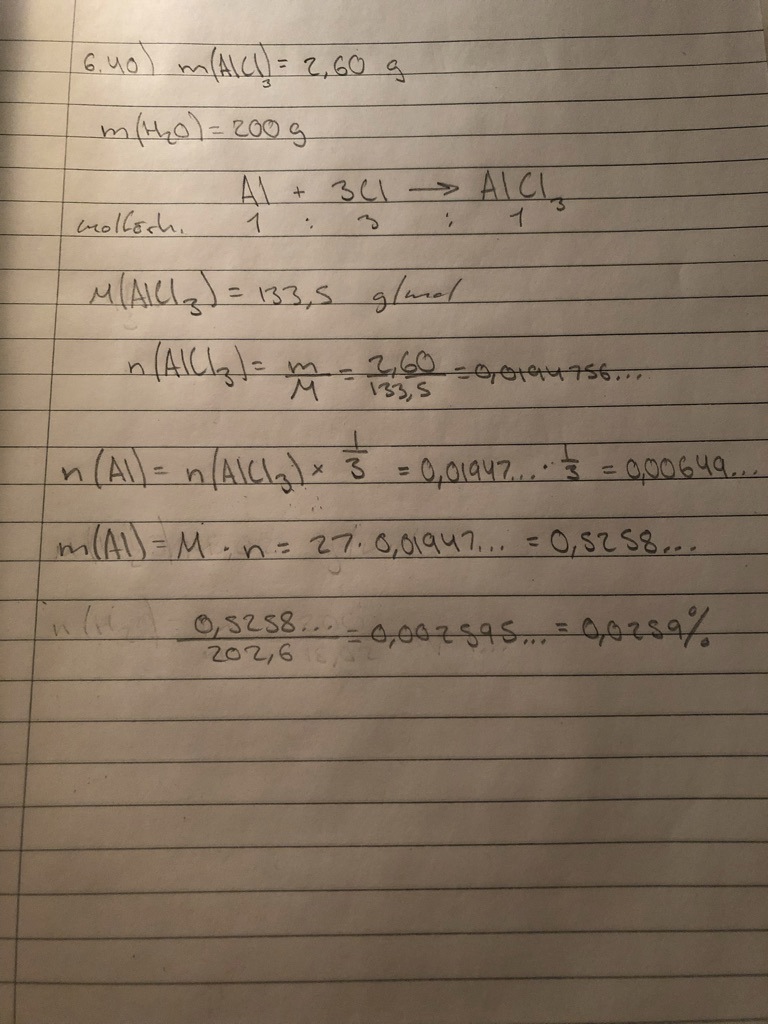 6.40) m(AlCl₃) = 2,60 g
m(H₂O) = 200 g
Al + 3Cl → AlCl₃
1 : 3 : 1
M(AlCl₃) = 133,5 g/mol
n(AlCl₃) = m/M = 2,60/133,5 = 0,0194756...
n(Al) = n(AlCl₃) × 1/3 = 0,01947... · 1/3 = 0,00649...
m(Al) = M · n = 27 · 0,01947... = 0,5258...
0,5258.../202,6 = 0,002595... = 0,0259%